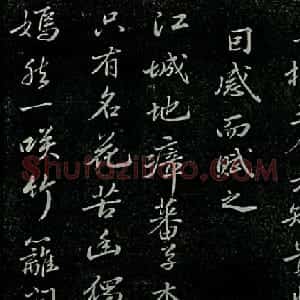 因感而賦之
江城地瘴蕃草木
只有名花苦幽獨
嫣然一咲竹籬間